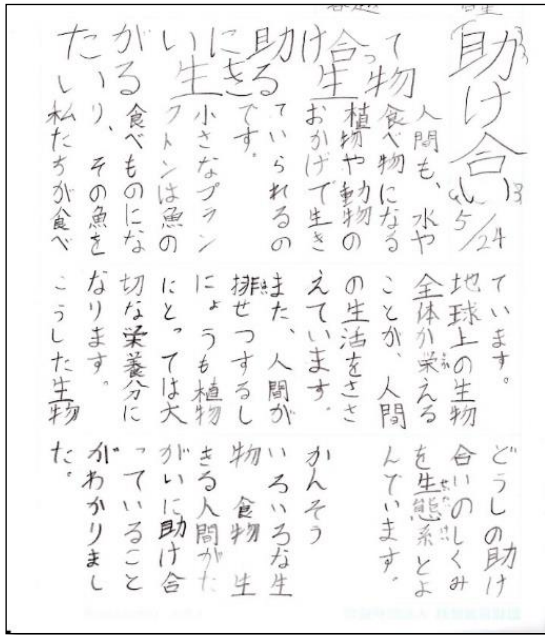 助け合い
5/24
たがいに助け合って
生きる生物
人間も、水や
食べ物になる
植物や動物の
おかげで生き
ていられるの
です。
小さなプラン
クトンは魚の
食べものにな
り、その魚を
私たちが食べ
ています。
地球上の生物
全体が栄える
ことが、人間
の生活をささ
えています。
また、人間が
排せつするし
にょうも植物
にとっては大
切な栄養分に
なります。
こうした生物
どうしの助け
合いのしくみ
を生態系とよ
んでいます。
かんそう
いろいろな生
物 食物 生
きる人間がた
がいに助け合
っていること
がわかりまし
た。